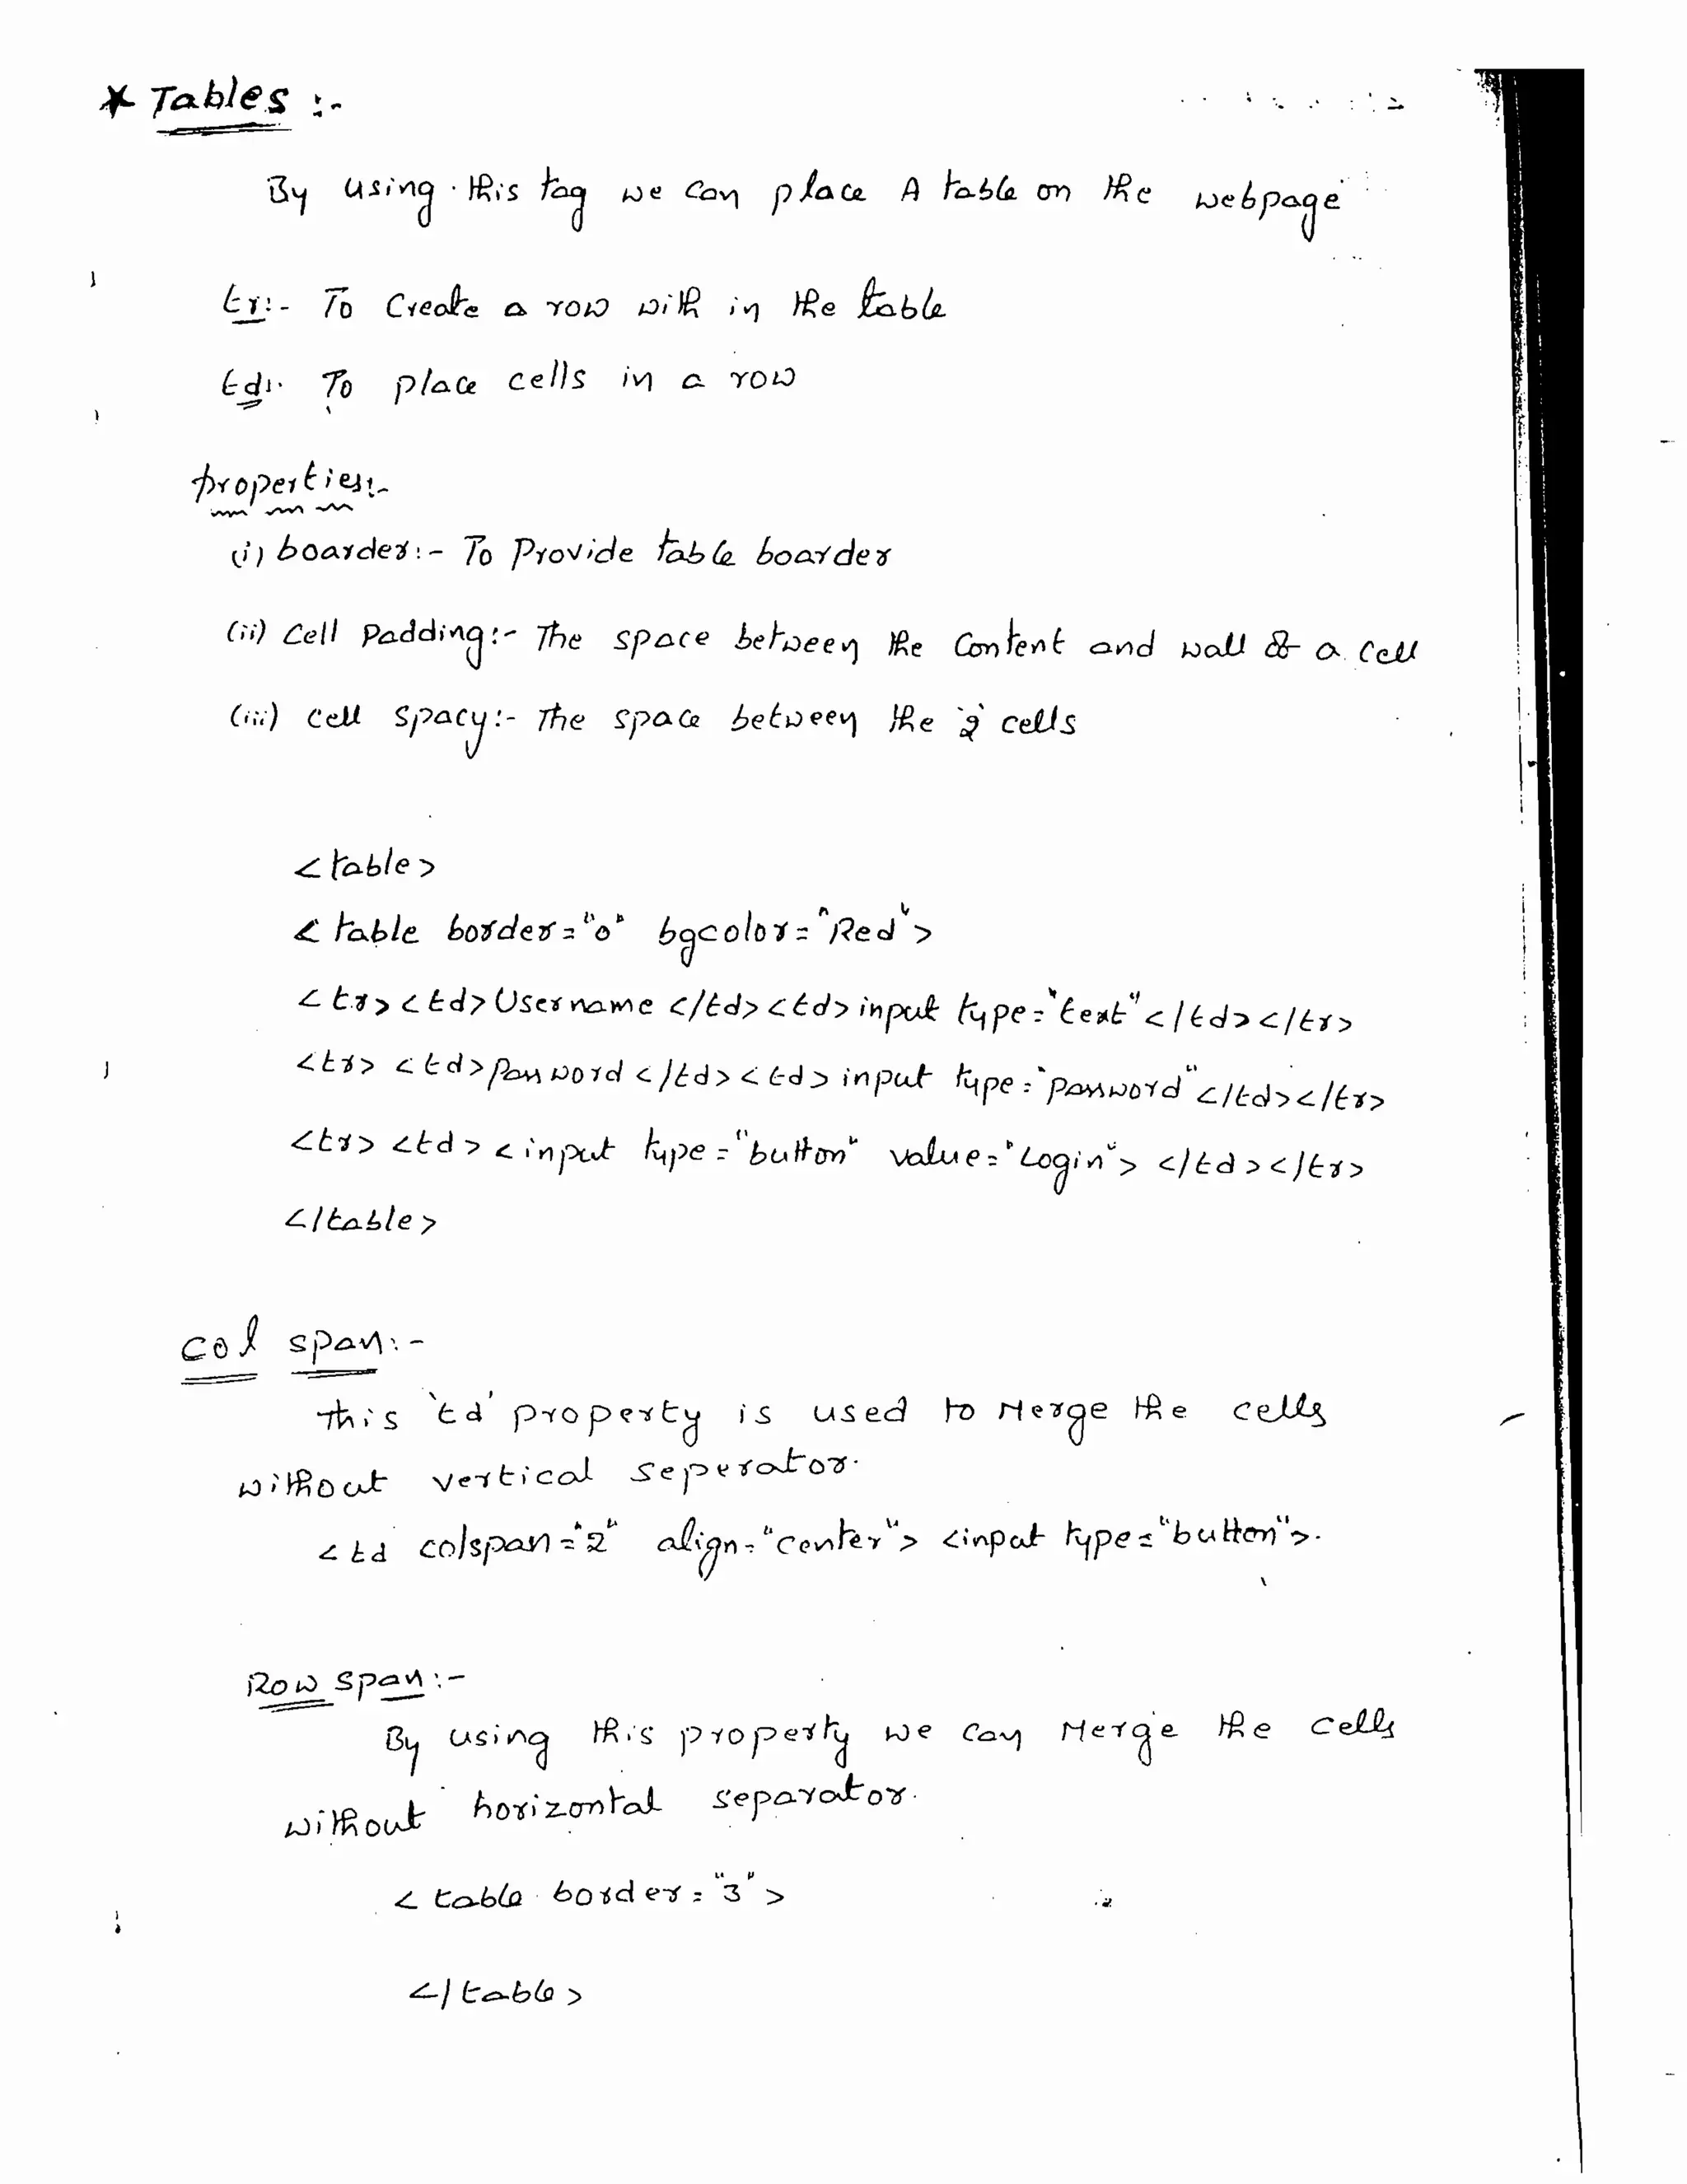 * Tables :-
By using this tag we can place A table on the webpage
tr:- To Create a row with in the table
td:- To place cells in a row
properties:-
(i) boarder:- To Provide table boarder
(ii) Cell Padding:- The space between the Content and wall of a cell
(iii) cell spacy:- The space between the 2 cells
<table>
< table border="0" bgcolor="Red">
<tr><td>Username </td><td> input type="text"</td></tr>
<tr> <td>Password </td><td> input type="password"</td></tr>
<tr> <td> <input type="button" value="Login"> </td></tr>
</table>
col span:-
This 'td' property is used to Merge the cells
without vertical seperator.
<td colspan="2" align="center"> <input type="button">.
Row span:-
By using this property we can Merge the cells
without horizontal separator.
< table border="3">
</table>